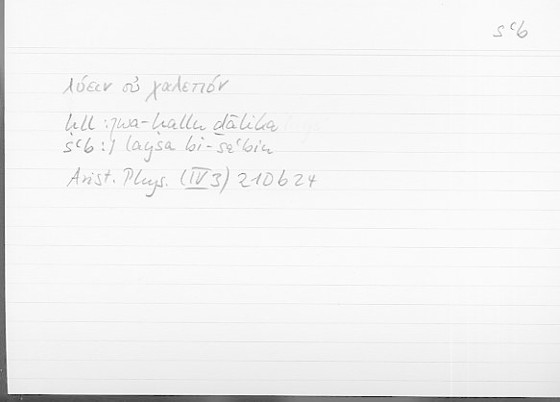 ṣʿb
λύειν οὐ χαλεπόν
ḥll : ꞁwa-ḥallu ḏālika
ṣʿb : ꞁ laysa bi-ṣaʿbin
Arist. Phys. (IV 3) 210b24